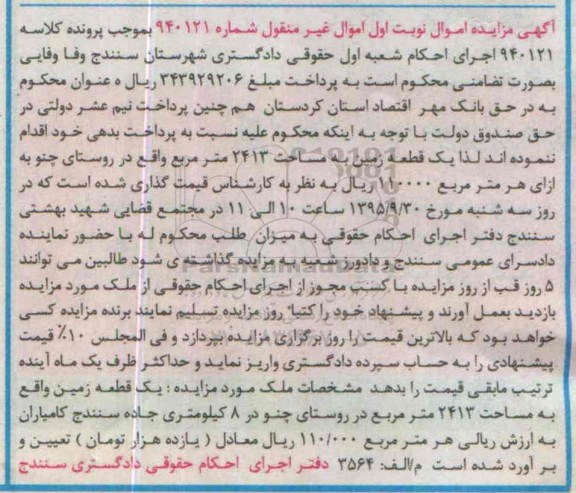 آگهی مزایده اموال نوبت اول اموال غیر منقول شماره ۹۴۰۱۲۱ بموجب پرونده کلاسه
۹۴۰۱۲۱ اجرای احکام شعبه اول حقوقی دادگستری شهرستان سنندج وفا وفایی
بصورت تضامنی محکوم است به پرداخت مبلغ ۳۴۳۹۲۹۲۰۶ ریال ه عنوان محکوم
به در حق بانک مهر اقتصاد استان کردستان هم چنین پرداخت نیم عشر دولتی در
حق صندوق دولت با توجه به اینکه محکوم علیه نسبت به پرداخت بدهی خود اقدام
ننموده اند لذا یک قطعه زمین به مساحت ۲۴۱۳ متر مربع واقع در روستای چنو به
ازای هر متر مربع ۱۱۰۰۰۰ ریال به نظر به کارشناس قیمت گذاری شده است که در
روز سه شنبه مورخ ۱۳۹۵/۹/۳۰ ساعت ۱۰ الی ۱۱ در مجتمع قضایی شهید بهشتی
سنندج دفتر اجرای احکام حقوقی به میزان طلب محکوم له با حضور نماینده
دادسرای عمومی سنندج و دادورز شعبه به مزایده گذاشته ی شود طالبین می توانند
۵ روز قب از روز مزایده با کسب مجوز از اجرای احکام حقوقی از ملک مورد مزایده
بازدید بعمل آورند و پیشنهاد خود را کتبا" روز مزایده تسلیم نمایند برنده مزایده کسی
خواهد بود که بالاترین قیمت را روز برگزاری مزایده بپردازد و فی المجلس ۱۰٪ قیمت
پیشنهادی را به حساب سپرده دادگستری واریز نماید و حداکثر ظرف یک ماه آینده
ترتیب مابقی قیمت را بدهد مشخصات ملک مورد مزایده : یک قطعه زمین واقع
به مساحت ۲۴۱۳ متر مربع در روستای چنو در ۸ کیلومتری جاده سنندج کامیاران
به ارزش ریالی هر متر مربع ۱۱۰/۰۰۰ ریال معادل ( یازده هزار تومان ) تعیین و
بر آورد شده است م/الف: ۳۵۶۴ دفتر اجرای احکام حقوقی دادگستری سنندج